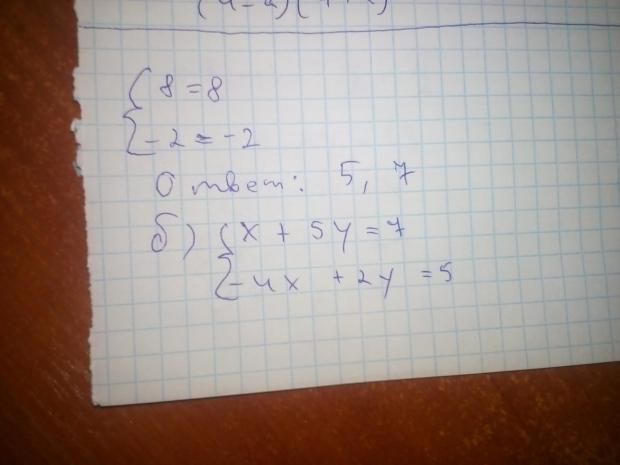 { 8 = 8
{ -2 = -2
Ответ: 5, 7
б) { x + 5y = 7
{ -4x + 2y = 5